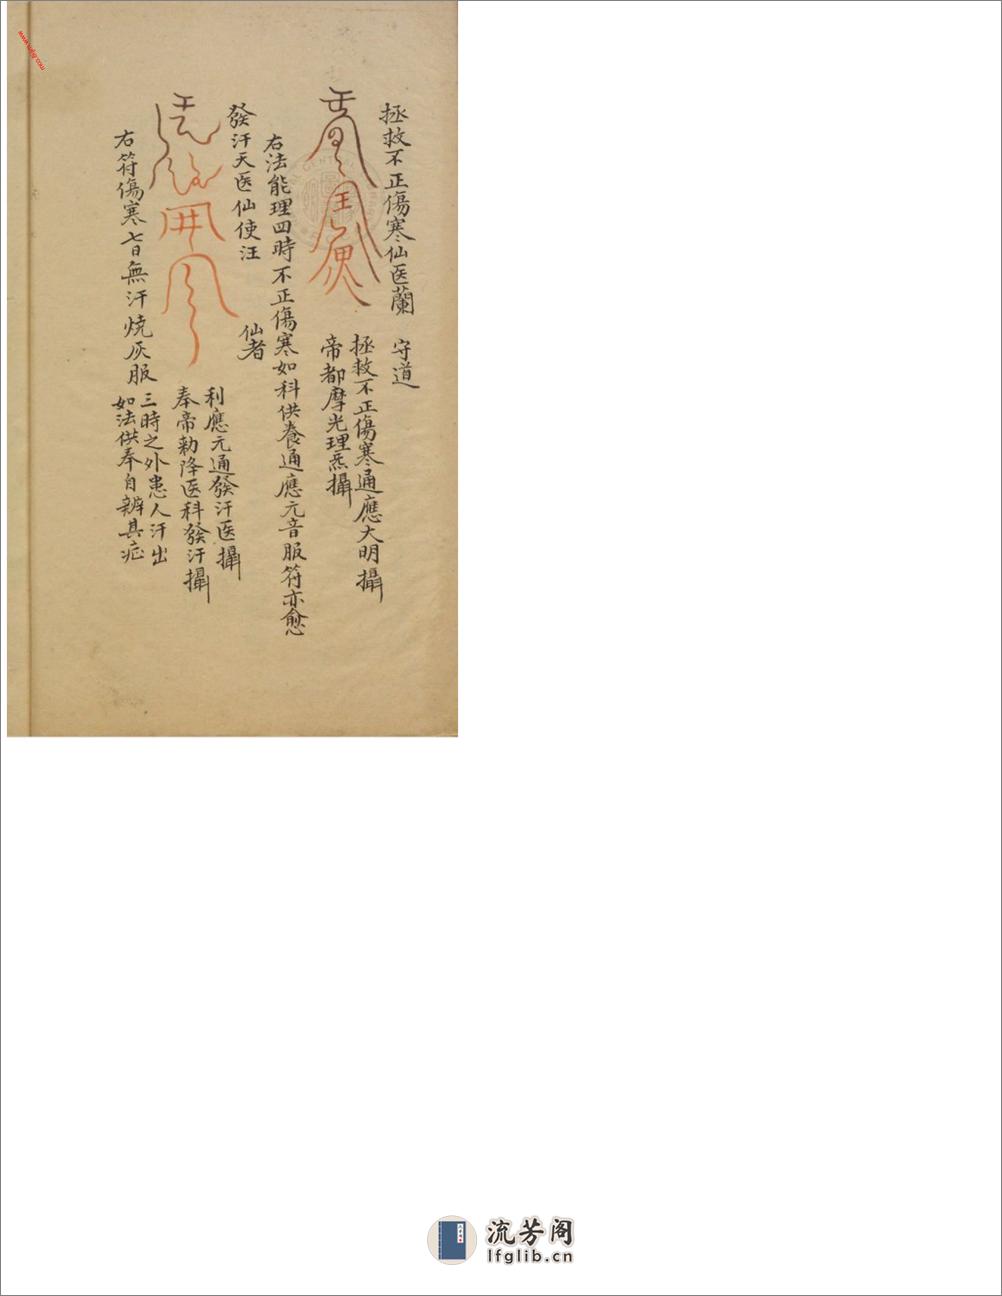 拯救不正傷寒仙医蘭　守道
拯救不正傷寒通應大明攝
帝都摩光理炁攝
右法能理四時不正傷寒如科供養通應元音服符亦愈
發汗天医仙使汪　仙者
利應元通發汗医攝
奉帝勅降医科發汗攝
右符傷寒七日無汗燒灰服
三時之外患人汗出
如法供奉自辨其症
流芳阁
lfglib.cn